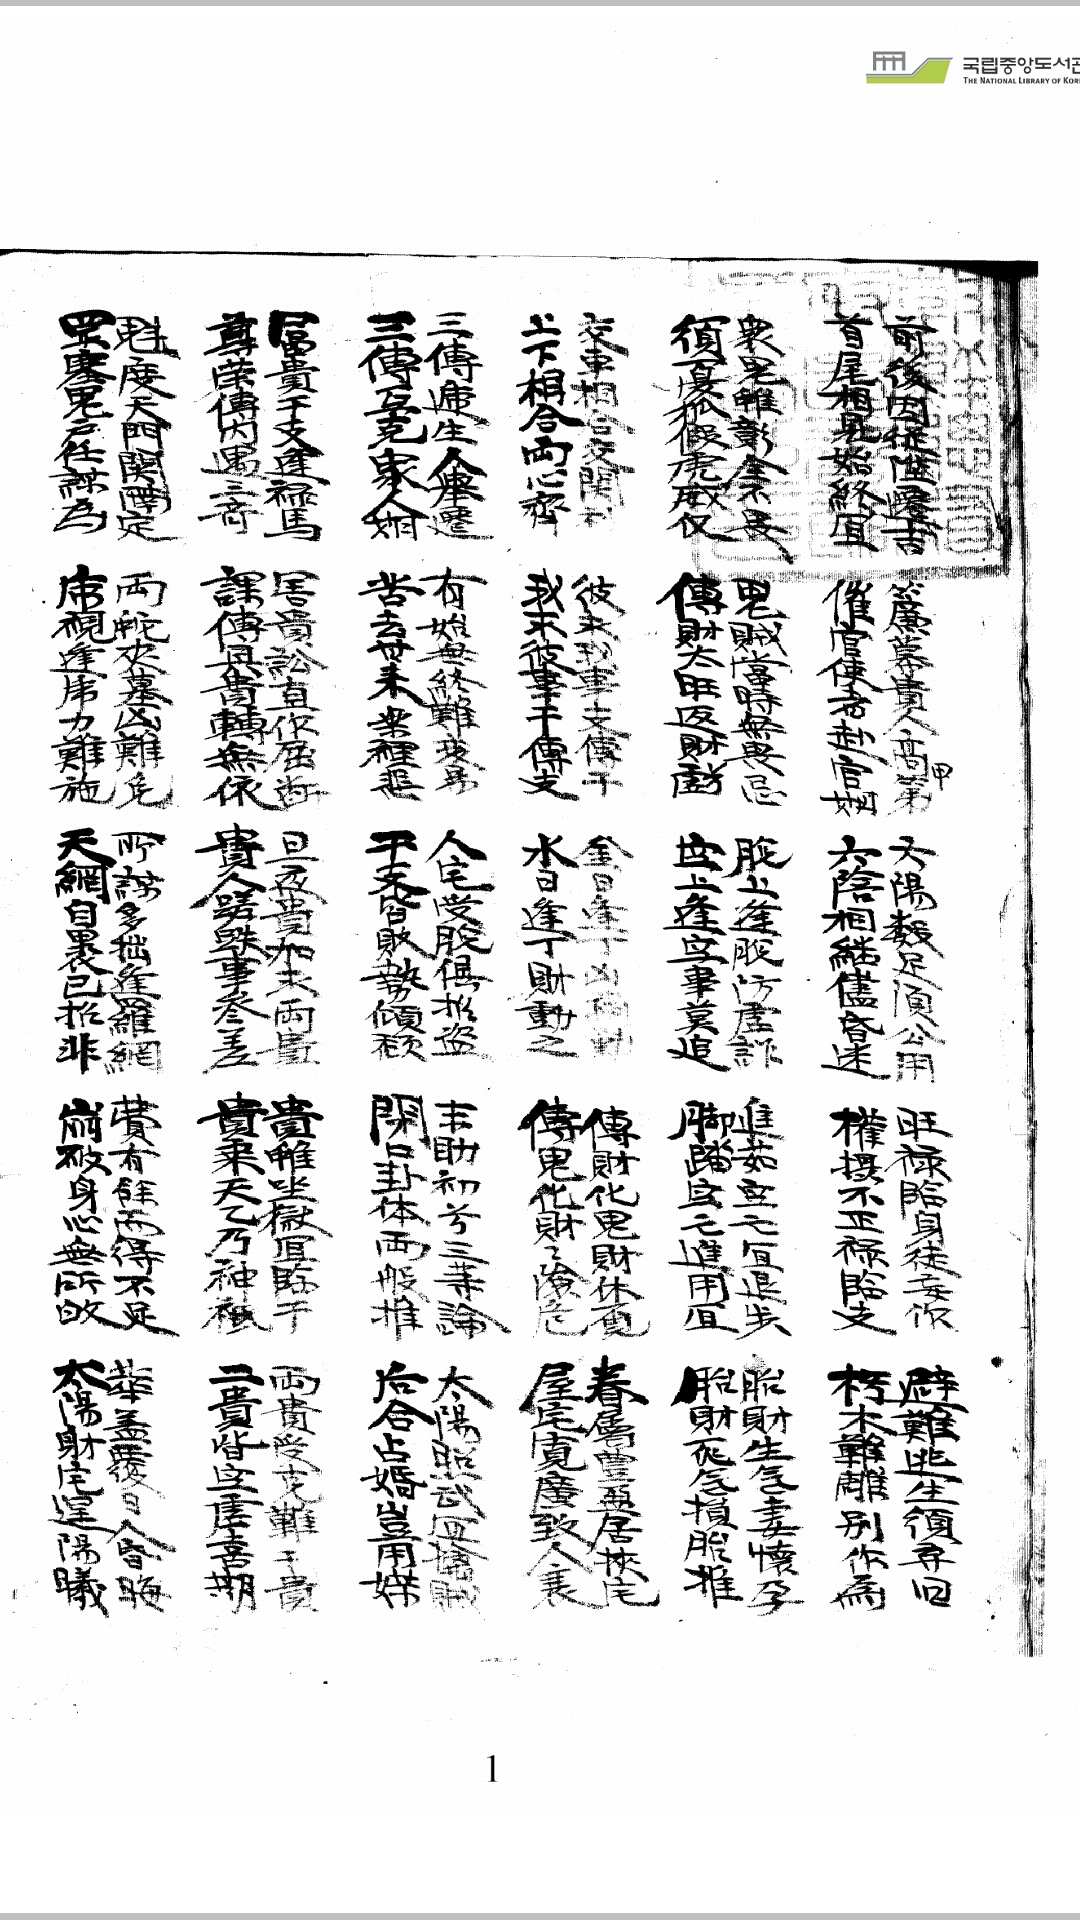 국립중앙도서관
THE NATIONAL LIBRARY OF KOREA
前後引從陞遷吉
首尾相見始終宜
簾幕貴人高甲第
催官使者赴官期
六陽數足須公用
六陰相継儘昏迷
旺祿臨身徒妄作
權攝不正祿臨支
避難逃生須尋旧
朽木難雕別作為
衆鬼雖彰全不畏
須憂狐假虎威仪
鬼賊當時無畏忌
傳財太旺返財虧
脫上逢脫防虛詐
空上逢空事莫追
進茹空亡宜退步
脚踏空亡進用宜
胎財生氣妻懷孕
胎財死氣損胎推
交車相合交関利
上下相合両心齊
彼求我事支傳干
我求彼事干傳支
金日逢丁凶禍動
水日逢丁財動之
傳財化鬼財休覓
傳鬼化財々險危
眷屬豊盈居狹宅
屋宅寬廣致人衰
三傳遞生人舉遷
三傳互克衆人欺
有始無終難変易
苦去甘来樂裡悲
人宅受脫俱招盜
干支皆敗勢傾頹
末助初兮三等論
閉口卦体両般推
太陽照武宜擒賊
后合占婚豈用媒
富貴干支逢祿馬
尊崇傳內遇三奇
害貴訟直作屈断
課傳俱貴轉無依
旦夜貴加求両貴
貴人蹉跌事參差
貴雖坐獄宜臨干
貴乘天乙乃神祇
両貴受克難干貴
二貴皆空虛喜期
魁度天門関隔定
罡塞鬼戶任謀為
両蛇夾墓凶難免
虎視逢虎力難施
所謀多拙逢羅網
天網自裹已招非
費有餘而得不足
破身心無所
華盖覆日人昏晦
太陽射宅陽曦
1